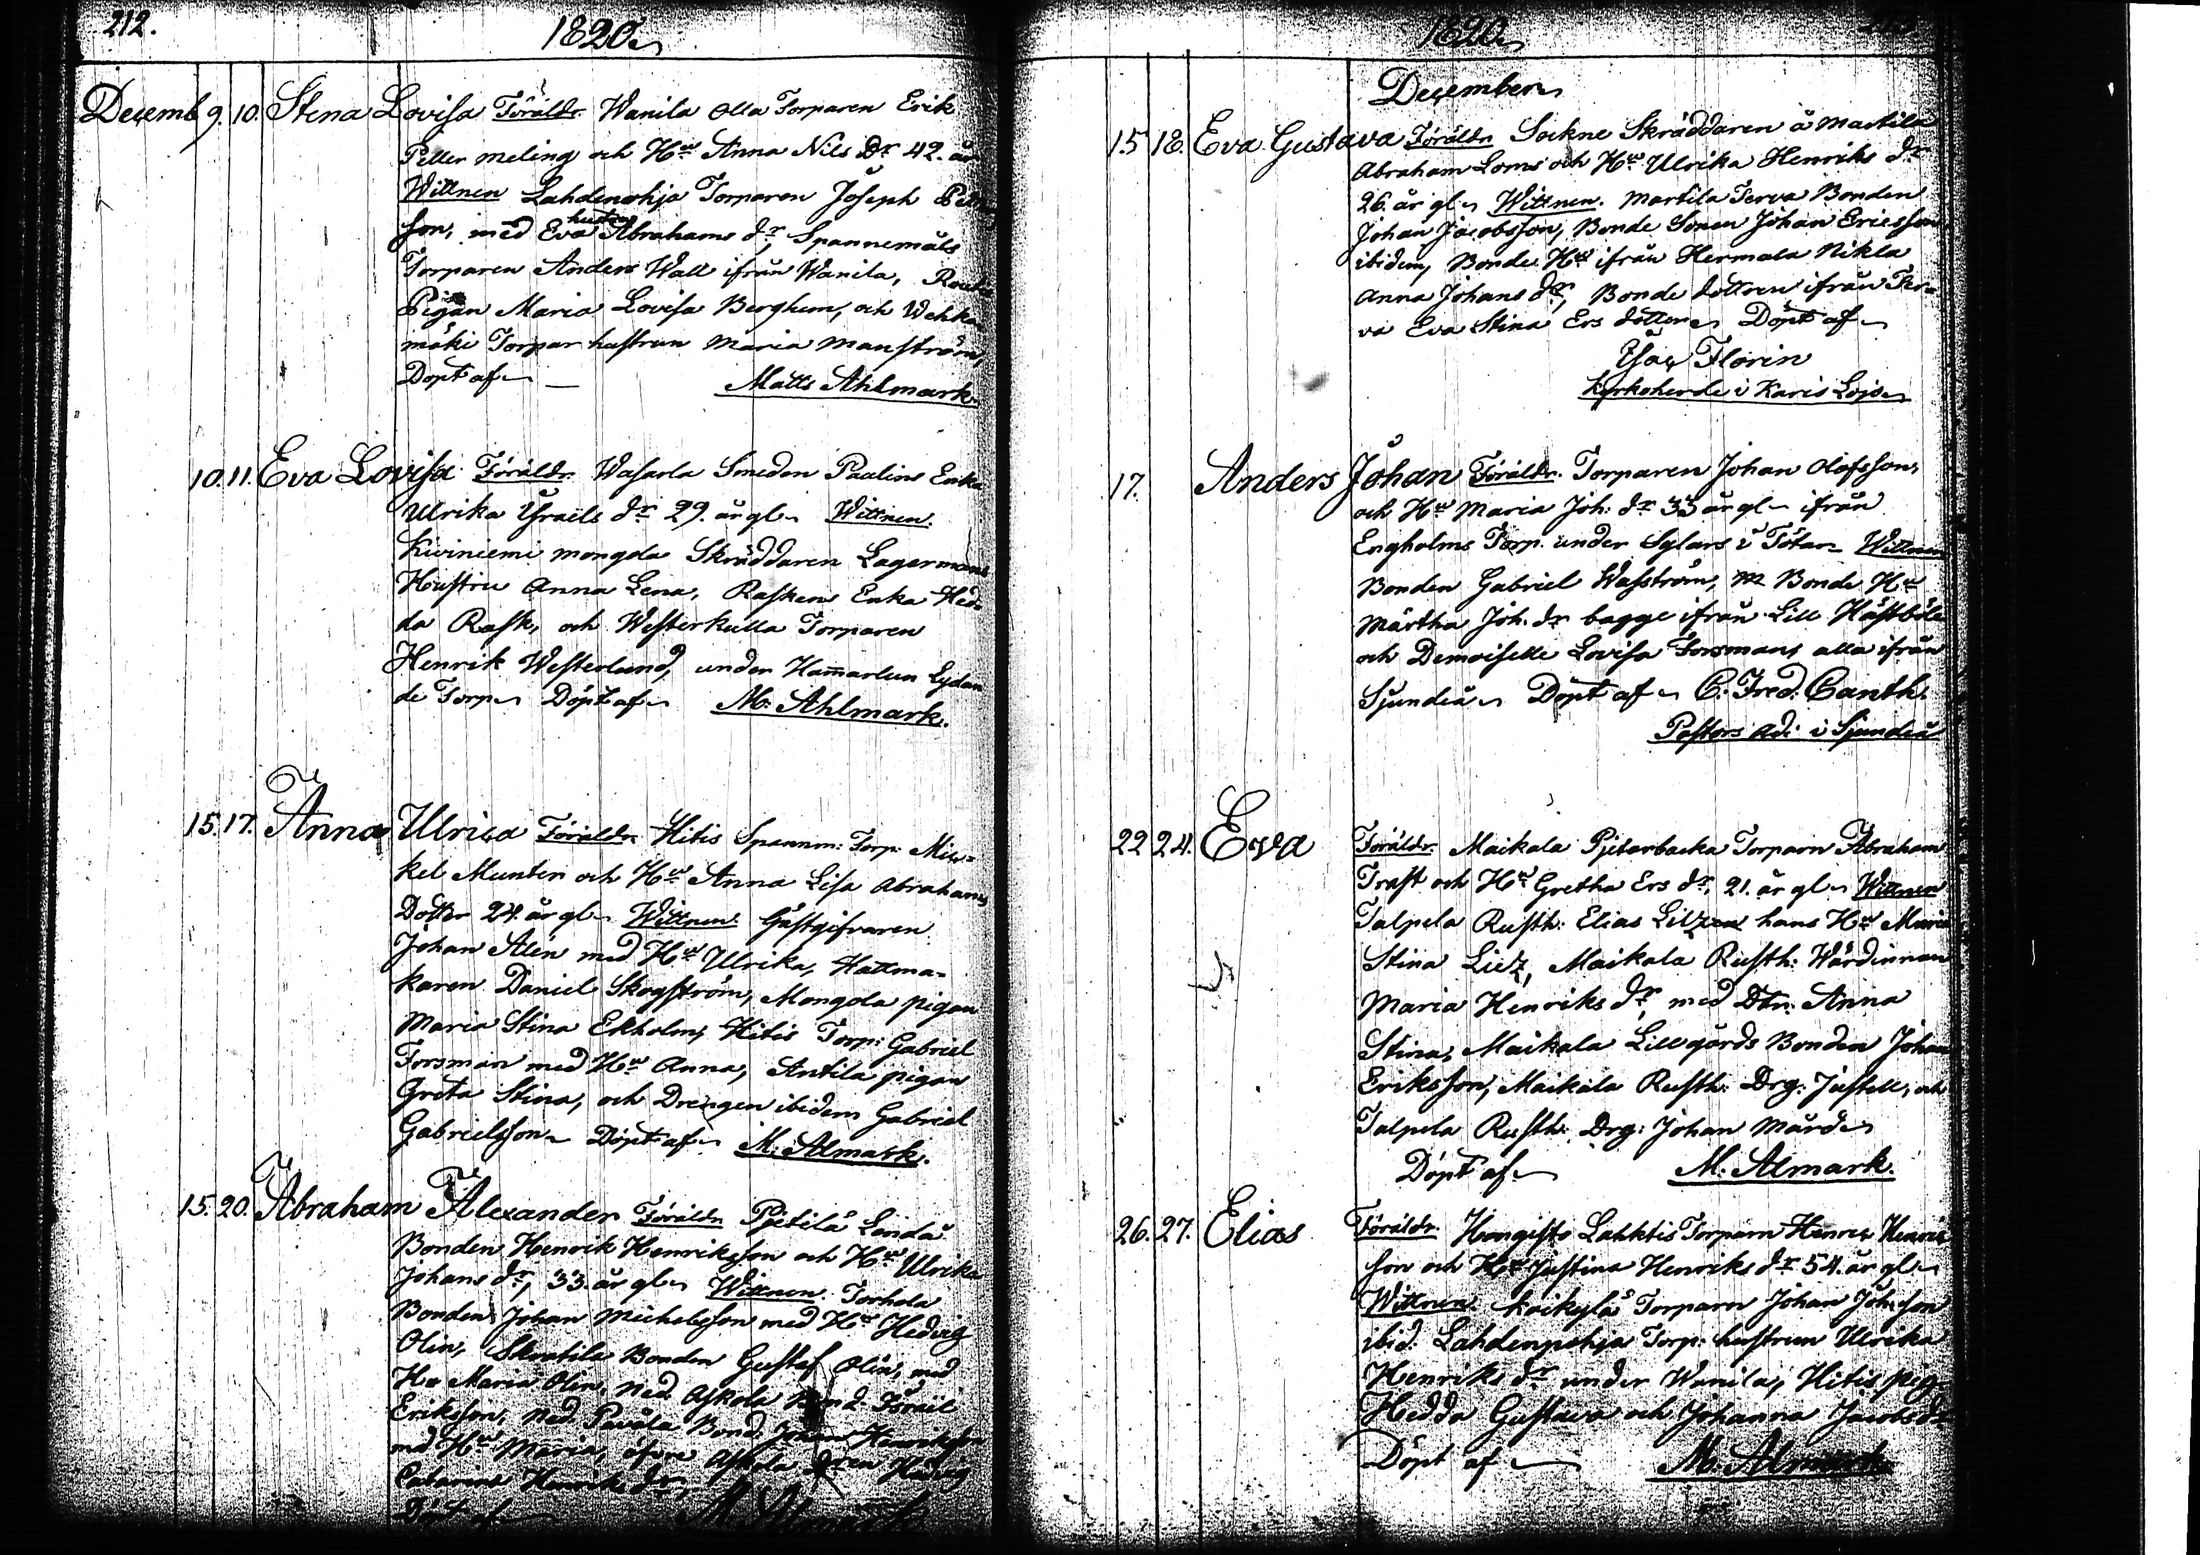 212.
1820
Decemb 9. 10. Stina Lovisa Föräldr. Wanila Olla Torparen Erik
Peller meling och Hu Anna Nils Dr 42. år
Wittnen Lahdenpohja Torparen Joseph Peters
son, med hustru Eva Abrahams dr, Spannemåls
Torparen Anders Wall ifrån Wanila,
Pigan Maria Lovisa Berghem, och Wehka
mäki Torpar hustrun Maria Manström,
Döpt af Matts Ahlmark.
10. 11. Eva Lovisa Föräldr. Wasarla Smeden Paulins Enka
Ulrika Israels dr 29. år gl. Wittnen.
Kiviniemi mongola Skräddaren Lagermans
Houstru Anna Lena, Raskens Enka Hed
da Rask, och Westerkulla Torparen
Henrik Westerlund, under Hamarlun Lydan
de Torp. Döpt af M. Ahlmark.
15. 17. Anna Ulrica Föräldr. Hitis Spannm: Torp: Mic-
kel Munter och Hu Anna Lisa Abrahams
Dotter 24. år gl. Wittnen. Gästgifvaren
Johan Alén med Hu Ulrika, Hattma-
karen Daniel Skogström, Mongola pigan
Maria Stina Ekholm, Hitis Torp: Gabriel
Forsman med Hu Anna, Antila pigan
Greta Stina, och Drengen ibidem Gabriel
Gabrielsson. Döpt af M. Almark.
15. 20. Abraham Alexander Föräldr. Pjetilä Londä
Bonden Henrik Henriksson och Hu Ulrika
Johans dr, 33. år gl. Wittnen. Torhola
Bonden Johan Michelsson med Hu Hedvig
Olin, Skratila Bonden Gustaf Olin, med
Hu Maria Olin, Ned. Askola Bond: Israël
Eriksson, Ned. Pavola Bond. Johan Henriksson
med Hu Maria, öfvre Askola Hedvig
Catarina Henriks dr,
Döpt af M. Almark
1820
December
15 18. Eva Gustava Föräldr. Sockne Skräddaren å Martila
Abraham Loms och Hu Ulrika Henriks dr
26. år gl. Wittnen. Martila Terva Bonden
Johan Jacobsson, Bonde Sonen Johan Ericsson
ibidem, Bonde Hu ifrån Hermala Nikla
Anna Johans dr, Bonde dottren ifrån Ter-
va Eva Stina Ers dotter. Döpt af
Isac Florin
Kyrkoherde i Karis Lojo
17. Anders Johan Föräldr. Torparen Johan Olofsson,
och Hu Maria Joh: dr 33 år gl. ifrån
Engholms Torp. under Sylars i Tötar. Wittnen
Bonden Gabriel Wasström, Bonde Hu
Märtha Joh. dr bagge ifrån Lill Hästböle
och Demoiselle Lovisa Forsman, alla ifrån
Sjundeå. Döpt af C. Fred. Canth.
Pastors Adj. i Sjundeå
22 24. Eva Föräldr. Maikala Pjetarbacka Torparn Abraham
Trast och Hu Gretha Ers dr, 21. år gl. Wittnen
Talpela Rusth: Elias Litz hans Hu Maria
Stina Litz, Maikala Rusth: Wärdinnan
Maria Henriks dr, med Dtr. Anna
Stina, Maikala Lillgårds Bonden Johan
Eriksson, Maikala Rusth: Drg: Justell, och
Talpela Rusth: Drg: Johan Mård
Döpt af M. Almark.
26. 27. Elias Föräldr. Hongisto Lahktis Torparn Henric Henrics
son och Hu Justina Henriks dr 54. år gl.
Wittnen. Koikylä Torparn Johan Johnsson
ibid. Lahdenpohja Torp: hustrun Ulrika
Henriks dr under Wanila, Hitis pig.
Hedda Gustava och Johanna Jacobs dr
Döpt af M. Almark